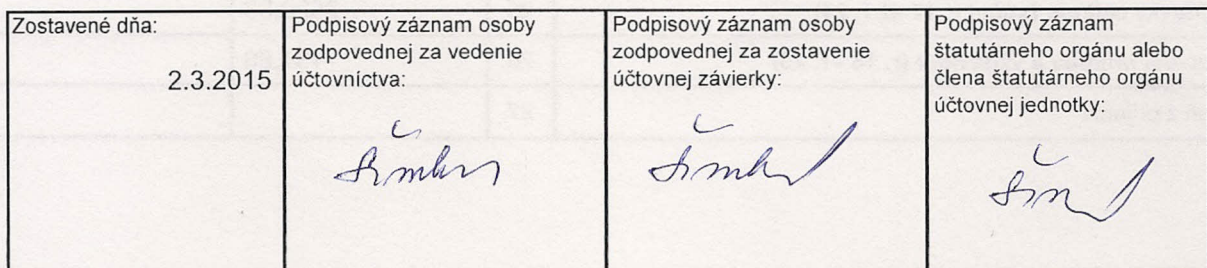 Zostavené dňa:
2.3.2015
Podpisový záznam osoby
zodpovednej za vedenie
účtovníctva:
Podpisový záznam osoby
zodpovednej za zostavenie
účtovnej závierky:
Podpisový záznam
štatutárneho orgánu alebo
člena štatutárneho orgánu
účtovnej jednotky: